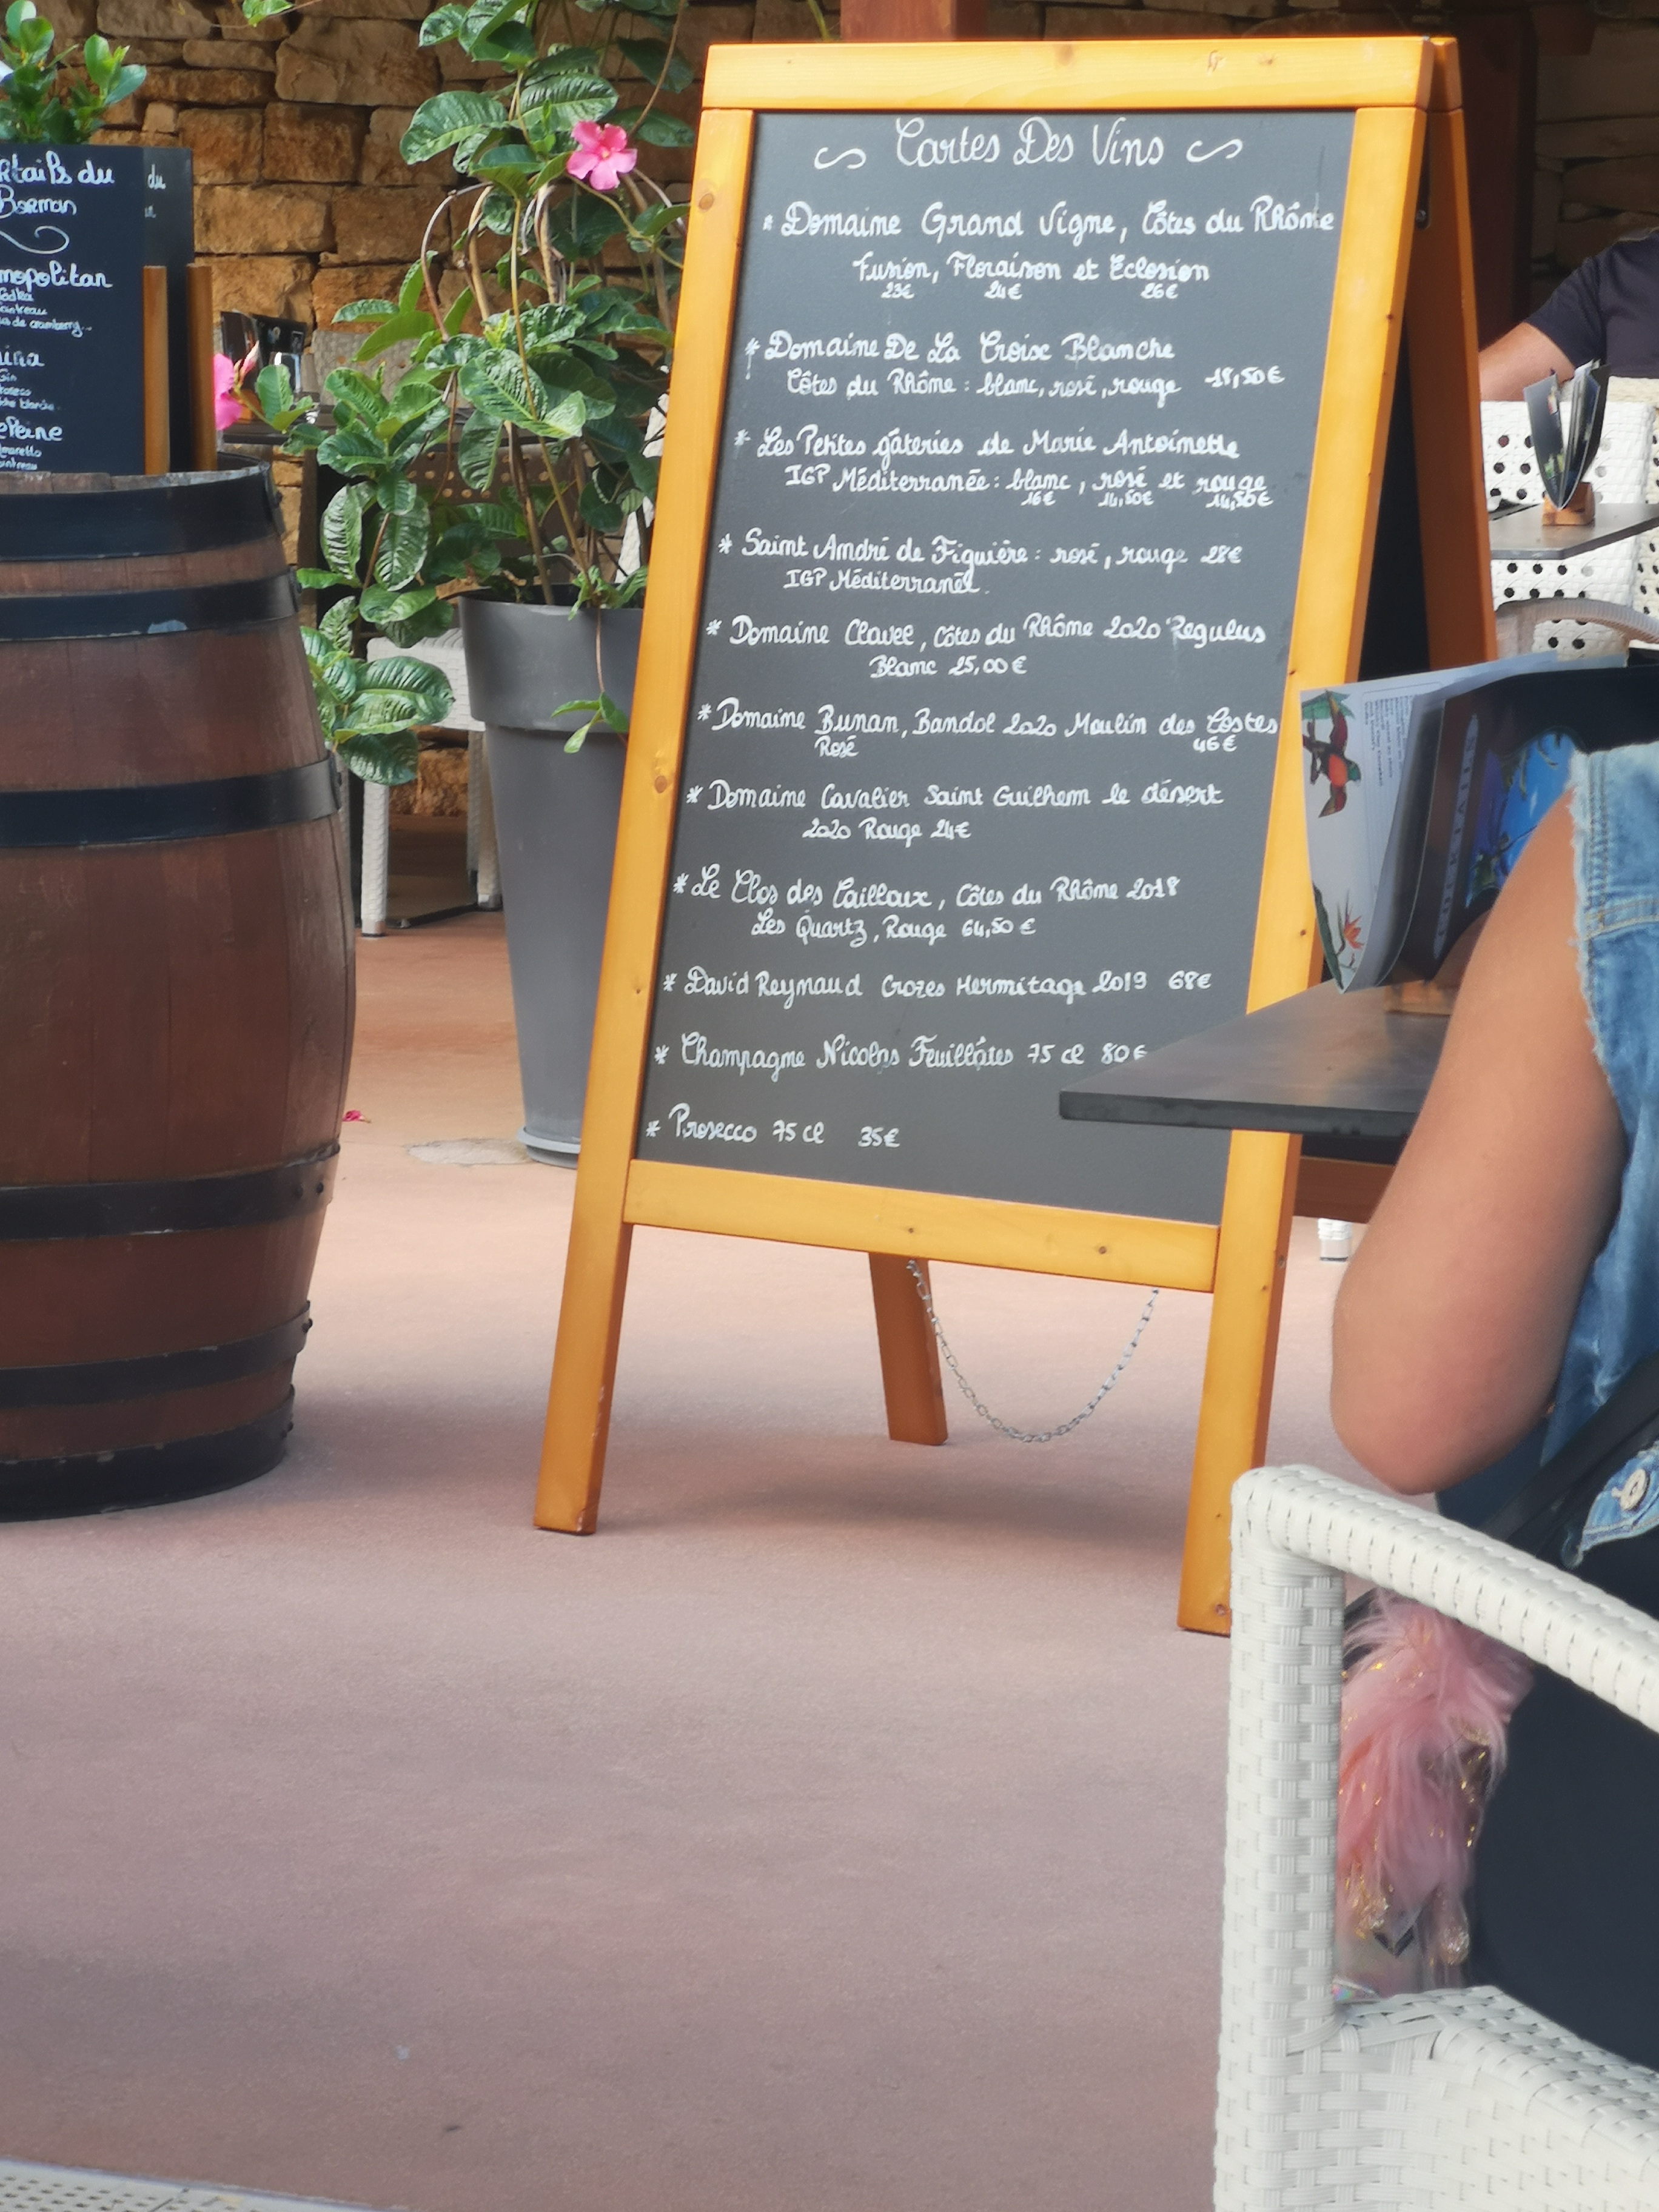 Cartes Des Vins
* Domaine Grand Vigne, Côtes du Rhône
Fusion, Floraison et Eclosion
23€ 24€ 26€
* Domaine De La Croix Blanche
Côtes du Rhône : blanc, rosé, rouge
* Les Petites gâteries de Marie Antoinette
IGP Méditerranée : blanc, rosé et rouge
16€ 14,50€ 14,50€
* Saint André de Figuière : rosé, rouge 28€
IGP Méditerranée.
* Domaine Clavel, Côtes du Rhône 2020 Regulus
Blanc 25,00€
* Domaine Bunan, Bandol 2020 Moulin des Costes
Rosé 46€
* Domaine Cavalier Saint Guilhem le désert
2020 Rouge 24€
* Le Clos des Cailloux, Côtes du Rhône 2018
Les Quartz, Rouge 64,50€
* David Reynaud Crozes Hermitage 2019 68€
* Champagne Nicolas Feuillâtes 75 cl 80€
* Prosecco 75 cl 35€
ktails du
Barman
mopolitan
odka
ointreau
us de cramberry...
COCKTAILS